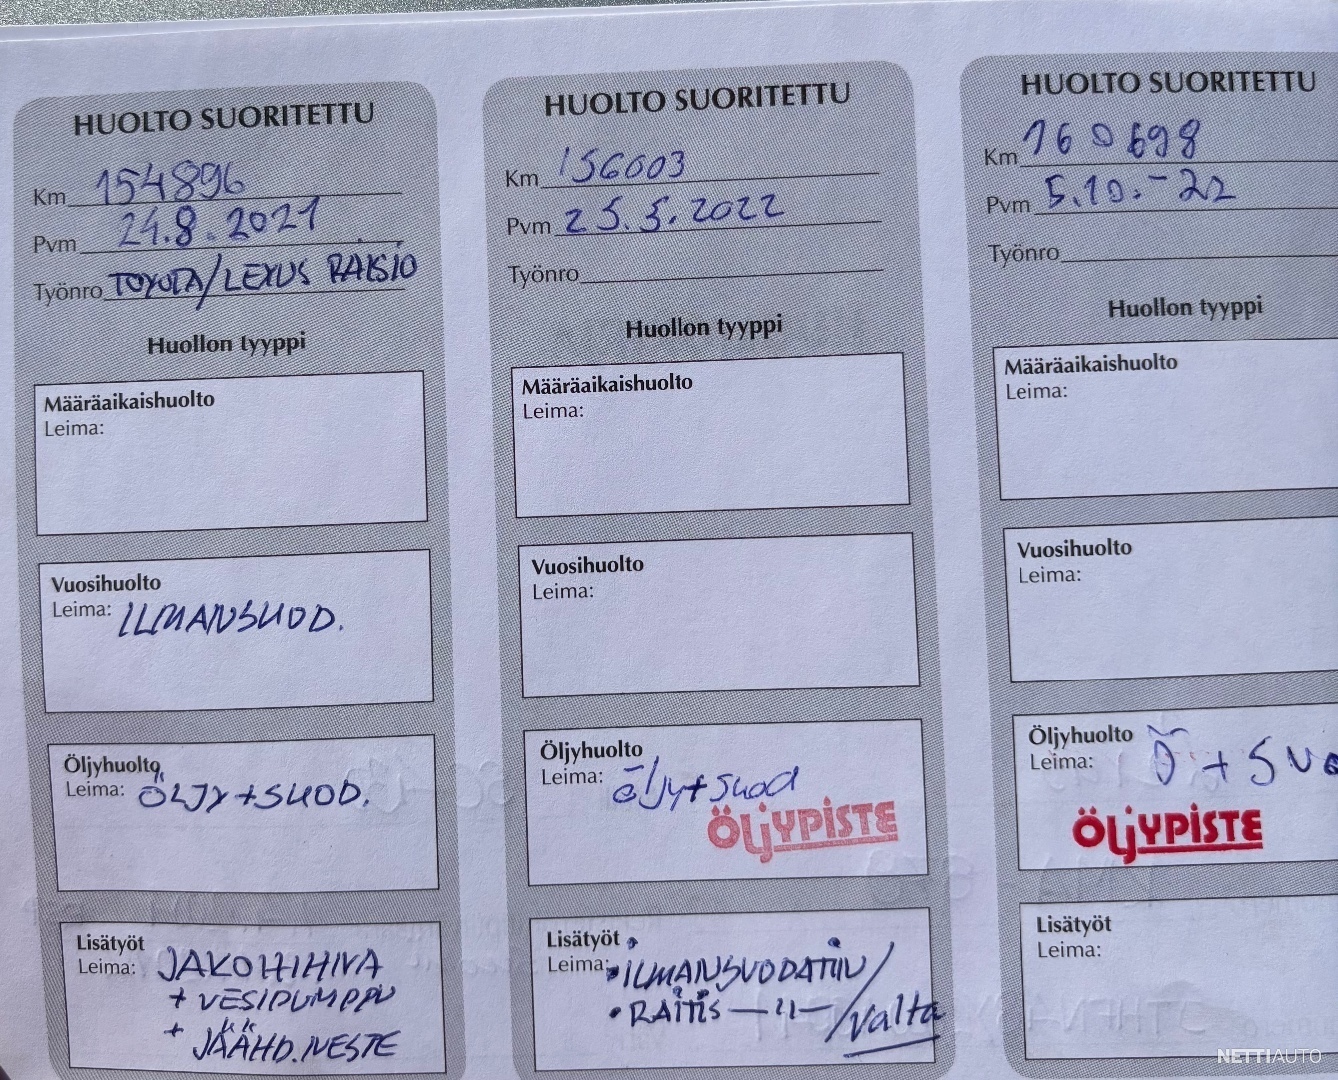 HUOLTO SUORITETTU
Km 154896
Pvm 24.8.2021
Työnro TOYOTA/LEXUS RAISIO
Huollon tyyppi
Määräaikaishuolto
Leima:
Vuosihuolto
Leima: ILMANSUOD.
Öljyhuolto
Leima: ÖLJY+SUOD.
Lisätyöt
Leima: JAKOHIHNA
+ VESIPUMPPU
+ JÄÄHD.NESTE
HUOLTO SUORITETTU
Km 156003
Pvm 25.5.2022
Työnro
Huollon tyyppi
Määräaikaishuolto
Leima:
Vuosihuolto
Leima:
Öljyhuolto
Leima: öljy+suod
ÖljYPISTE
Lisätyöt
Leima: • ILMANSUODATIN/
• RAITIS —11—/Valta
HUOLTO SUORITETTU
Km 160698
Pvm 5.10.-22
Työnro
Huollon tyyppi
Määräaikaishuolto
Leima:
Vuosihuolto
Leima:
Öljyhuolto
Leima: Ö + Suo
ÖljYPISTE
Lisätyöt
Leima:
NETTIAUTO